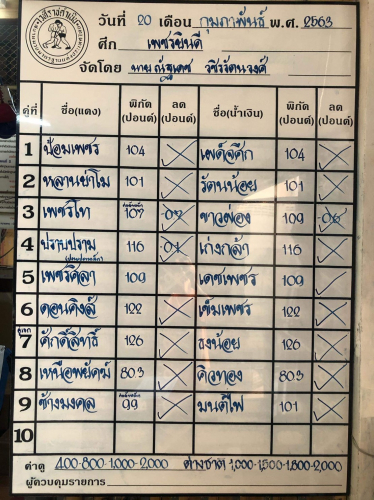 วันที่ 20 เดือน กุมภาพันธ์ พ.ศ. 2563
ศึก เพชรยินดี
จัดโดย นาย ณัฐเดช วชิรรัตนวงศ์
คู่ที่ ชื่อ(แดง) พิกัด (ปอนด์) ลด (ปอนด์) ชื่อ(น้ำเงิน) พิกัด (ปอนด์) ลด (ปอนด์)
1 น้อมเพชร 104 104
2 หลานย่าโม 101 รัตนน้อย 101
3 เพชรโท 107 ขาวผ่อง 109
4 ปราบปราม 116 เก่งกล้า 116
5 เพชรศิลา 109 เดชเพชร 109
6 ดอนคิงส์ 122 เข็มเพชร 122
คู่เอก
7 ศักดิ์สิทธิ์ 126 ธงน้อย 126
8 เหนือพยัคฆ์ 803 คิวทอง 803
9 ช้างมงคล 99 มนต์ไฟ 101
10
ค่าดู 400-800-1,000-2,000 ต่างชาติ 1,000-1,500-1,800-2,000
ผู้ควบคุมรายการ